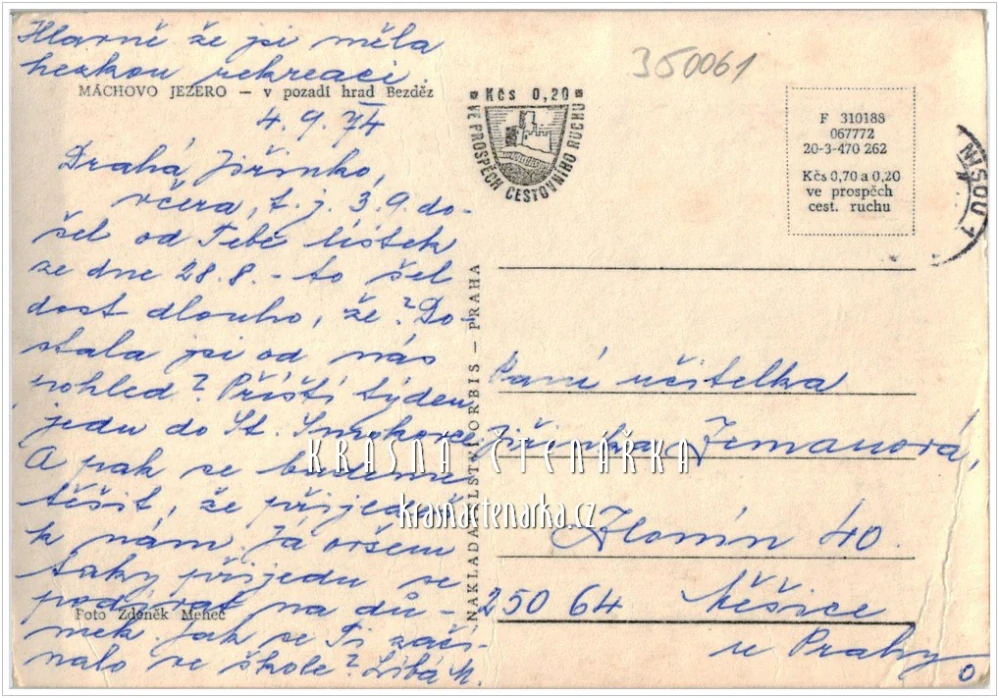 Hlavně že jsi měla
hezkou rekreaci.
MÁCHOVO JEZERO — v pozadí hrad Bezděz
4. 9. 74
Drahá Jiřinko,
včera, t. j. 3.9. do-
šel od Tebe lístek
ze dne 28.8. - to šel
dost dlouho, že? Do-
stala jsi od nás
pohled? Příští týden
jedu do St. Smokovce
A pak se budeme
těšit, že přijedeš
k nám. Já ovšem
taky přijedu se
podívat na dů-
Foto Zdeněk Meneč
mek. Jak se Ti zači-
nalo ve škole? Líbá M.
350061
Kčs 0,20
VE PROSPĚCH CESTOVNÍHO RUCHU
F 310188
067772
20-3-470 262
Kčs 0,70 a 0,20
ve prospěch
cest. ruchu
NISOU 1
NAKLADATELSTVÍ ORBIS — PRAHA
Paní učitelka
Jiřinka Zemanová,
KRÁSNÁ ČTENÁŘKA
krasnactenarka.cz
Zlonín 40.
250 64 Měšice
u Prahy